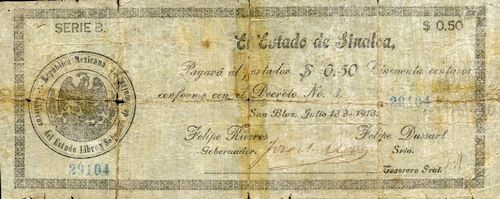 SERIE B.
$ 0.50
El Estado de Sinaloa,
Pagará al portador $ 0.50 Cincuenta centavos
conforme con el Decreto No. 3.
29104
San Blas, Julio 18 de 1913.
República Mexicana
Gobierno del Estado Libre y Soberano de Sinaloa
Felipe Riveros
Felipe Dussart
Gobernador.
Srio.
29104
Tesorero Gral.